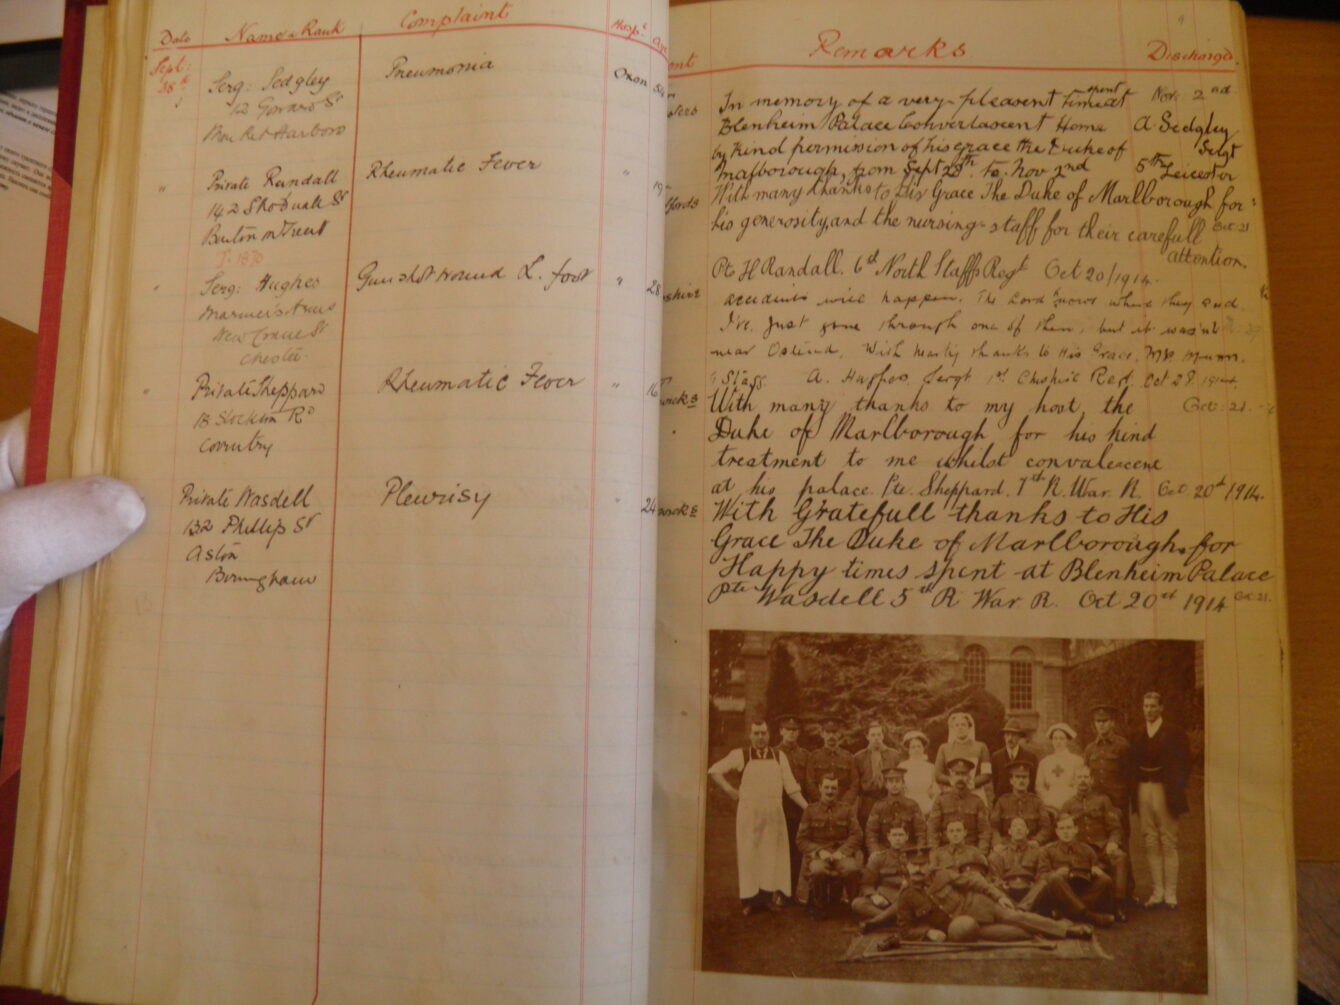 Date Name & Rank Complaint Hosp.
Sept: 28th Serg: Sedgley Pneumonia Oxon
12 St
Mar Ket Harboro
" Private Randall Rheumatic Fever " 19
142 St
Burton on Trent
Serg: Hughes Gunshot wound L. foot " 28
Mariners Arms
New Crane St
Chester
" Private Sheppard Rheumatic Fever " 16
18 Stockton Rd
Coventry
Private Wasdell Pleurisy " 24
132 Phillip St
Aston
Birmingham
Remarks Discharged
In memory of a very pleasent time spent at Nov: 2nd.
Blenheim Palace Converlascent Home A Sedgley
by Kind permission of his grace the Duke of Sergt
Marlborough, from Sept 28th. to. Nov 2nd 5th Leicester
With many thanks to His Grace The Duke of Marlborough for
his generosity, and the nursing-staff for their carefull Oct. 21
attention.
Pte H Randall. 6th North Staffs Regt Oct 20/1914.
accidents will happen. The Lord knows where they end.
I've. Just gone through one of them, but it wasn't
near Ostend, With hearty thanks to His Grace,
" Staff. A. Hughes Sergt 1st Cheshire Oct 28. 1914.
With many thanks to my host the Oct: 21.
Duke of Marlborough for his kind
treatment to me whilst convalescene
at his palace. Pte. Sheppard. 7th R. War. R. Oct 20th 1914.
With Gratefull thanks to His
Grace The Duke of Marlborough. for
Happy times spent at Blenheim Palace
Pte Wasdell 5th R War. R. Oct 20th 1914 Oct. 21.